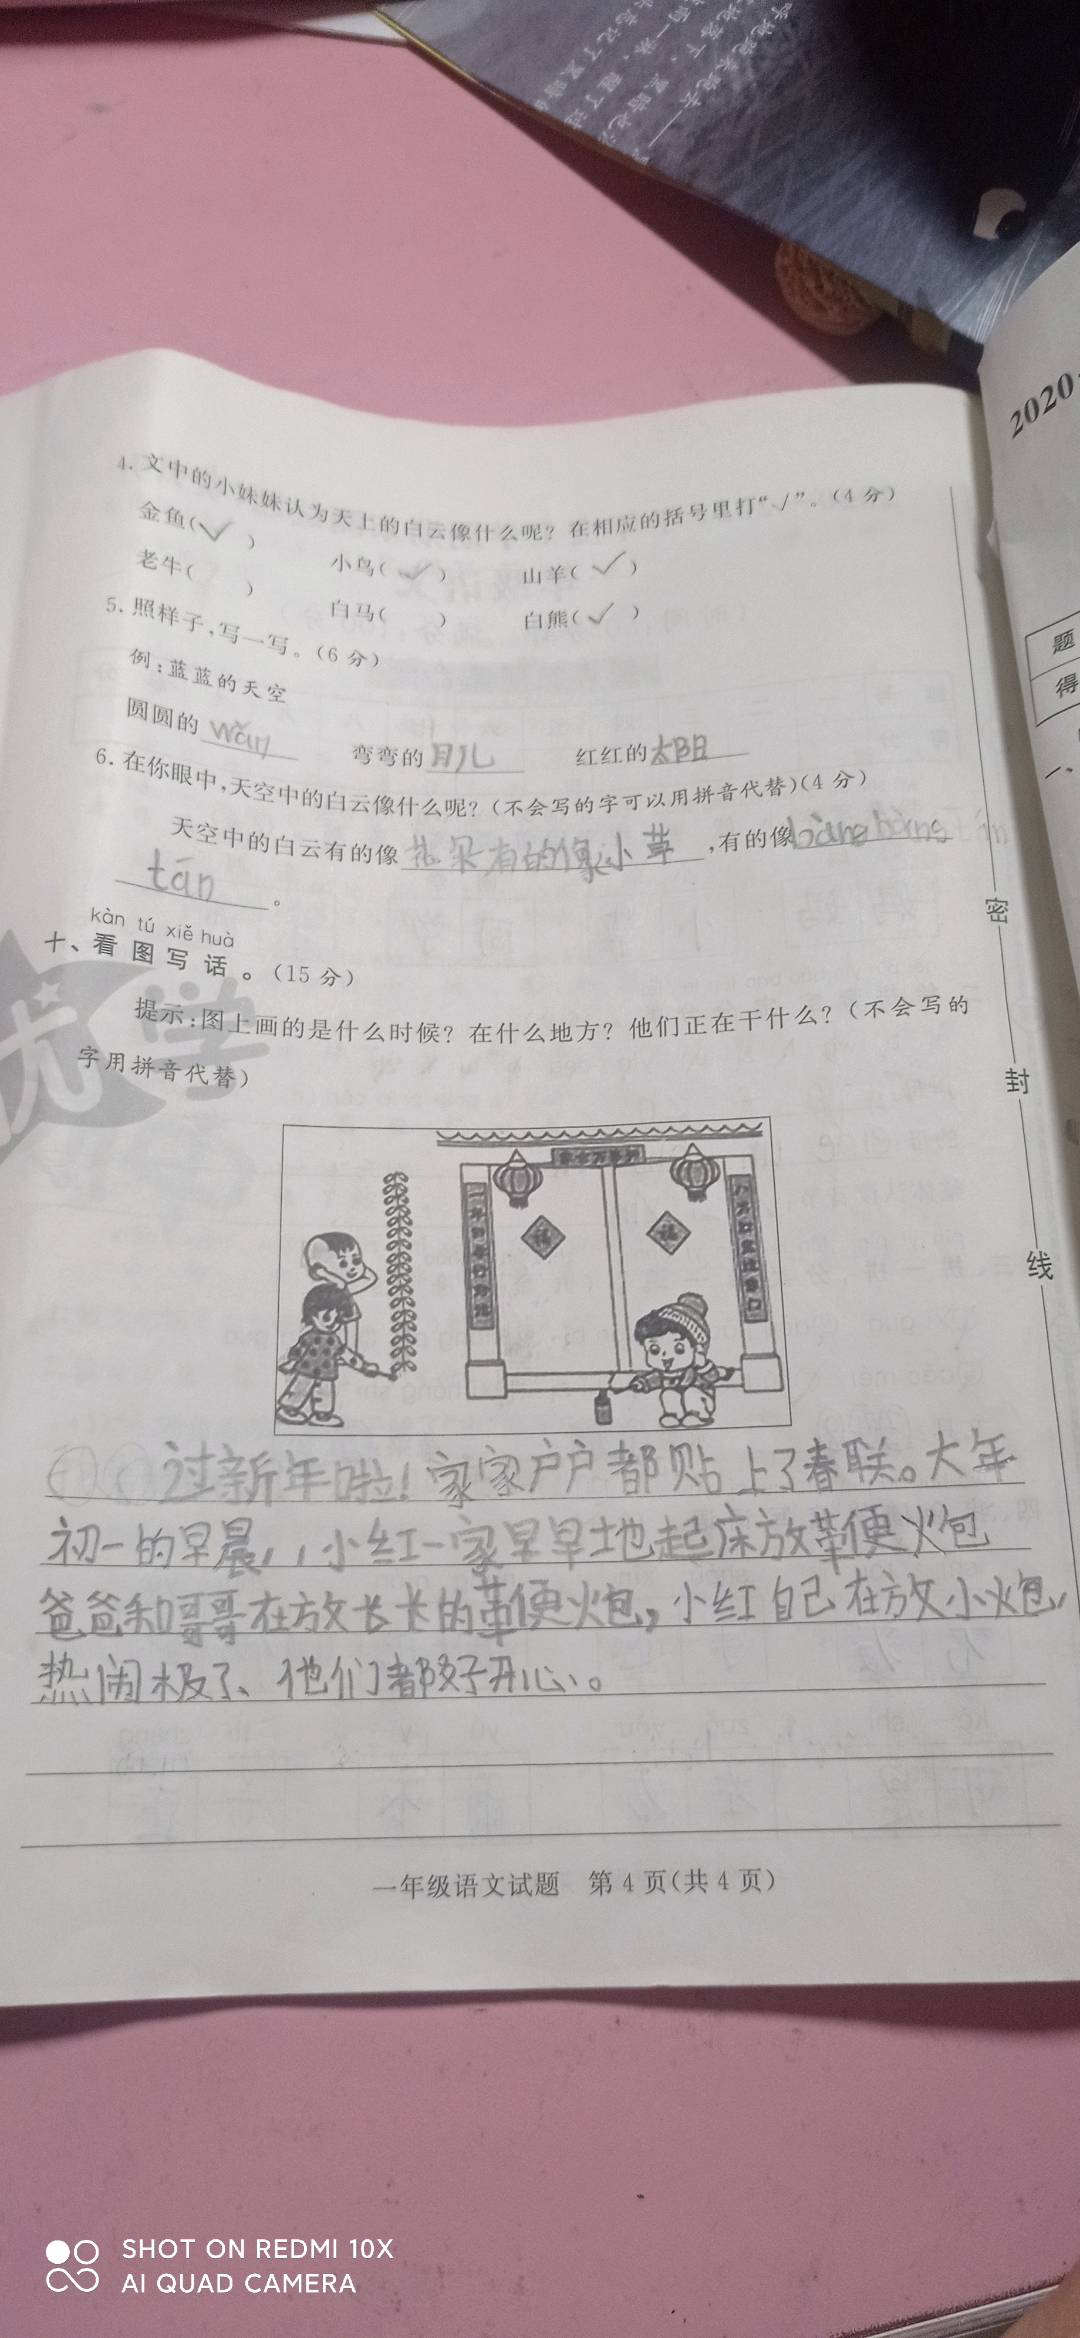 2020
4. 文中的小妹妹认为天上的白云像什么呢？在相应的括号里打“√”。(4 分)
金鱼(✓) 小鸟(✓) 山羊(✓)
老牛( ) 白马( ) 白熊(✓)
5. 照样子,写一写。(6 分)
例:蓝蓝的天空
圆圆的wǎn 弯弯的月儿 红红的太阳
6. 在你眼中,天空中的白云像什么呢？(不会写的字可以用拼音代替)(4 分)
天空中的白云有的像花朵有的像小草,有的像bàng bàng
tán。
kàn tú xiě huà
十、看图写话。(15 分)
提示:图上画的是什么时候？在什么地方？他们正在干什么？(不会写的
字用拼音代替)
福 福
过新年啦！家家户户都贴上了春联。大年
初一的早晨，小红一家早早地起床放鞭炮
爸爸和哥哥在放长长的鞭炮，小红自己在放小炮，
热闹极了、他们都好开心。
一年级语文试题 第 4 页(共 4 页)
密
封
线
题
得
一、
优学
SHOT ON REDMI 10X
AI QUAD CAMERA